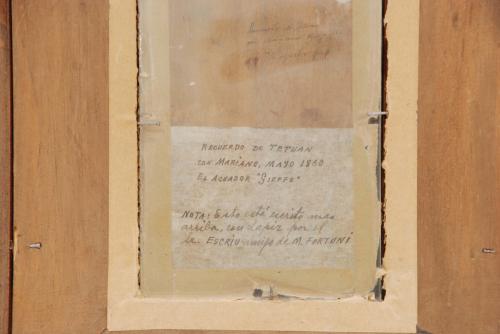 Recuerdo de
RECUERDO DE TETUAN
CON MARIANO, MAYO 1860
EL AGUADOR "SIEFFE"
NOTA: Esto está escrito mas
arriba, con lapiz por el
Sr. ESCRIU amigo de M. FORTUNÍ